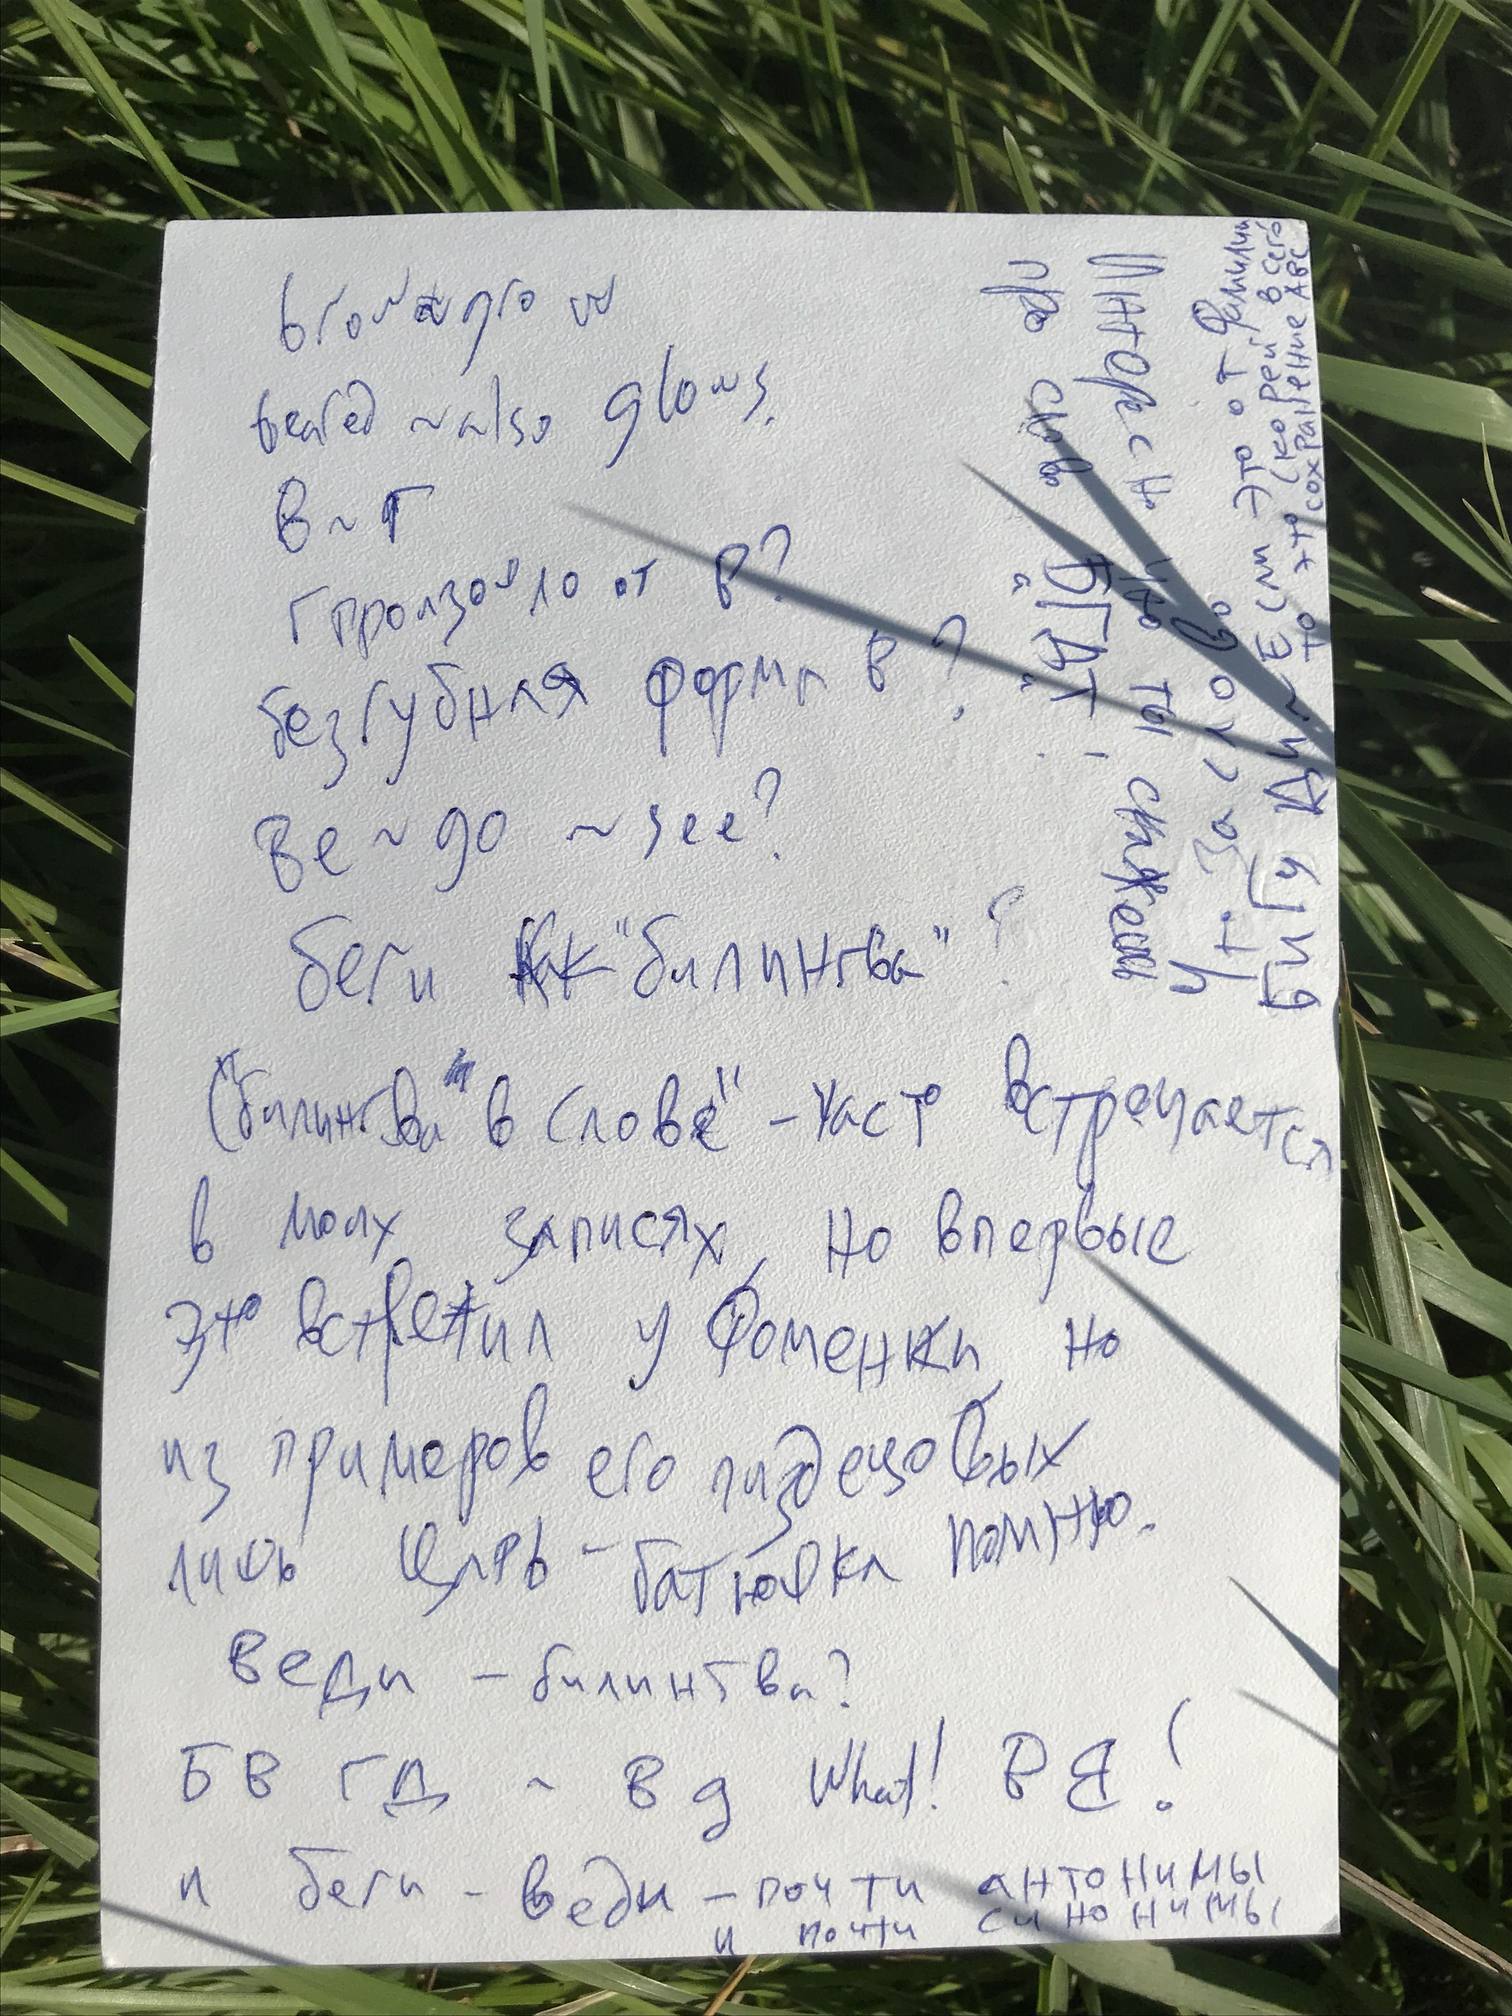 grow
beard ~ also glows.
В ~ Г
Г произошло от В?
безгубная форма В?
Be ~ go ~ see?
беги как "билингва"?
("билингва" в слове" - часто встречается
в моих записях, но впервые
это встретил у Фоменки, но
из примеров его пиздецовых
лишь царь-батюшка помню.
веди - билингва?
БВ ГД ~ В д What! В В!
и беги - веди - почти антонимы
и почти синонимы
Интересно, что ты скажешь
про слово
за слово
БиГуди ~ Если это от Фамилии
то это скорей всего
сохранение АВС